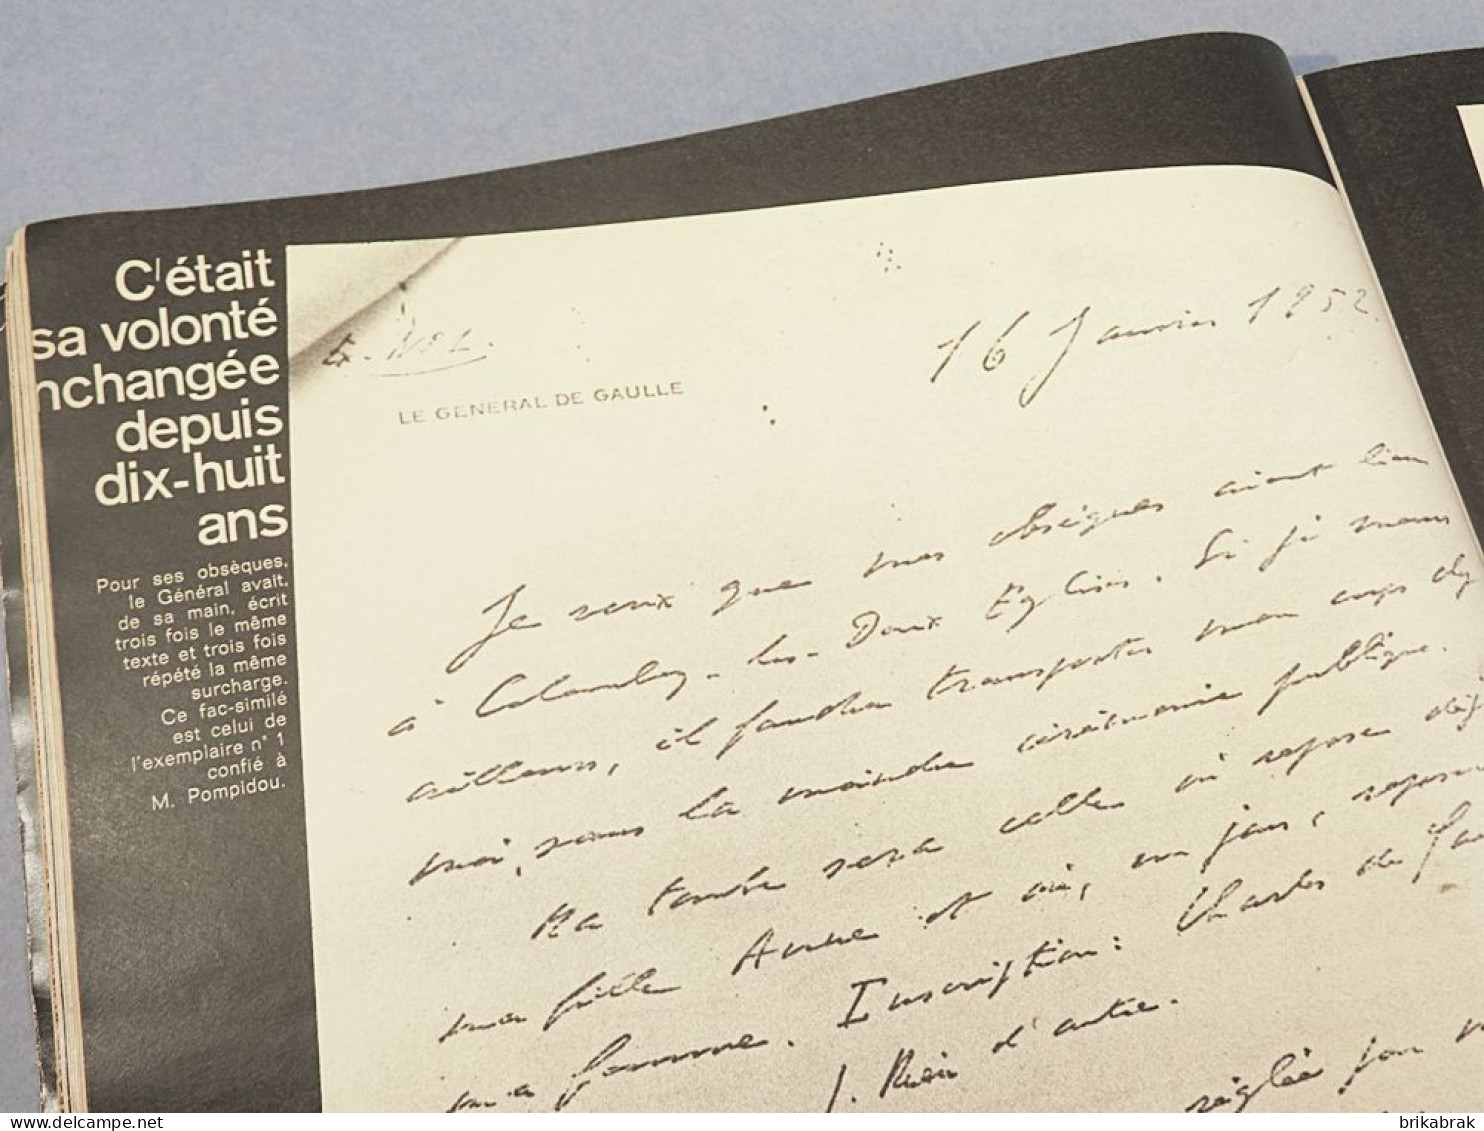 C'était
sa volonté
nchangée
depuis
dix-huit
ans
Pour ses obsèques,
le Général avait,
de sa main, écrit
trois fois le même
texte et trois fois
répété la même
surcharge.
Ce fac-similé
est celui de
l'exemplaire n° 1
confié à
M. Pompidou.
LE GENERAL DE GAULLE
16 Janvier 1952.
Je veux que mes obsèques aient lieu
à Colombey-les-Deux Eglises. Si je meurs
ailleurs, il faudra transporter mon corps
moi, sans la moindre cérémonie publique.
Ma tombe sera celle où repose déj
ma fille Anne et où, un jour, repose
ma femme. Inscription: Charles de Gau
). Rien d'autre.
réglée par
brikabrak
www.delcampe.net